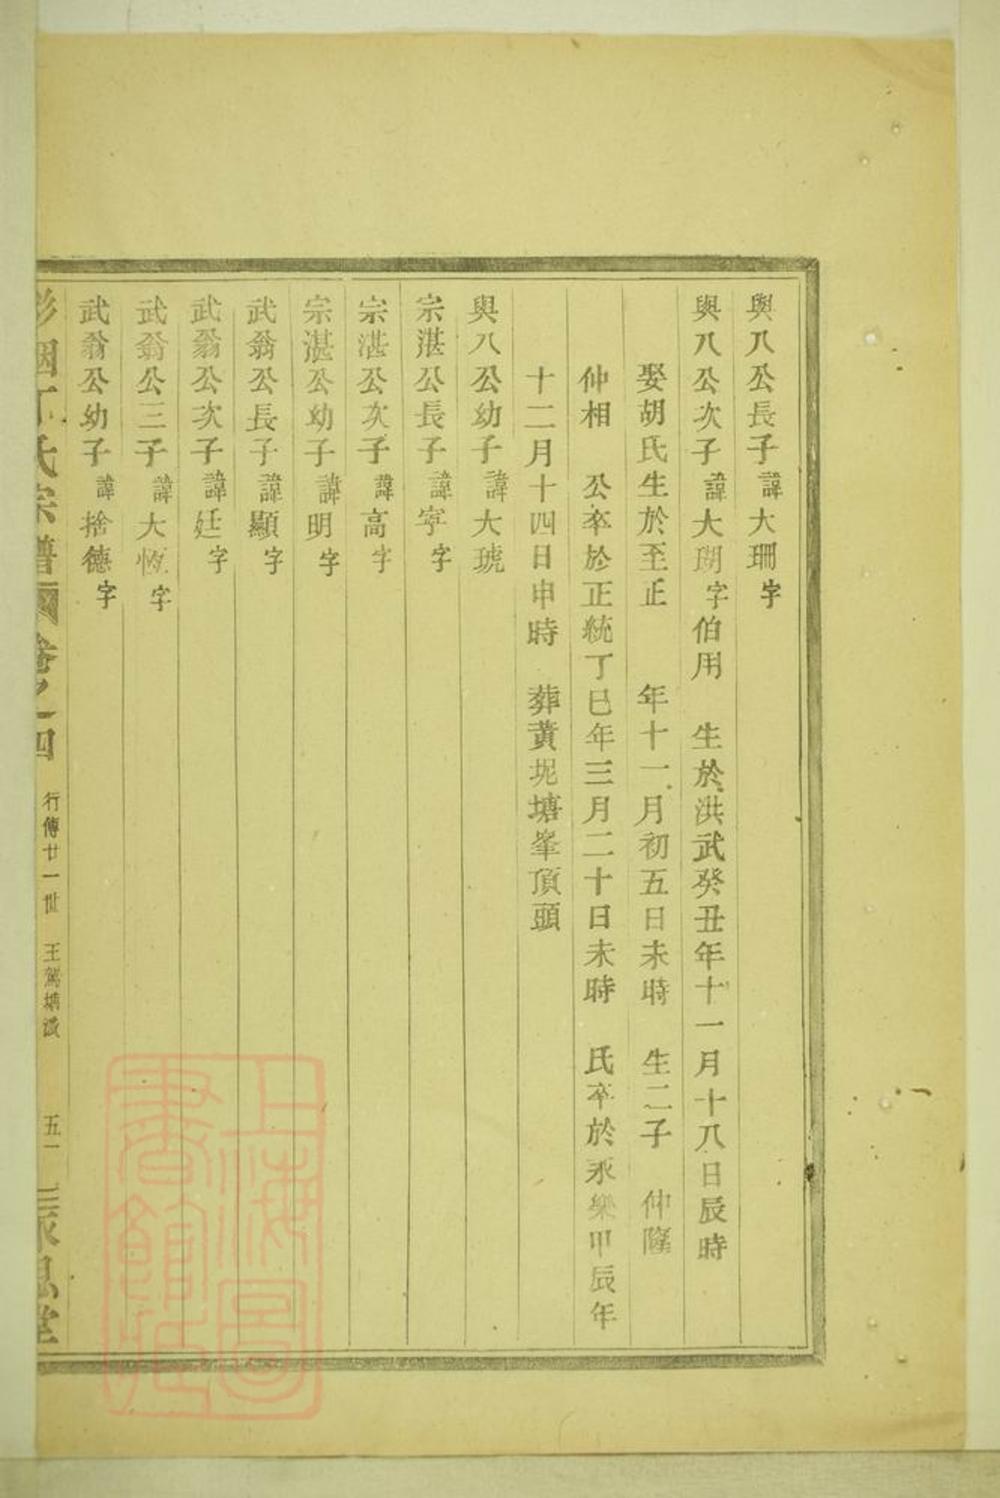 與八公長子諱大珊字
與八公次子諱大瑚字伯用 生於洪武癸丑年十一月十八日辰時
娶胡氏生於至正 年十一月初五日未時 生二子 仲隆
仲相 公卒於正統丁巳年三月二十日未時 氏卒於永樂甲辰年
十二月十四日申時 葬黃坭塘峯頂頭
與八公幼子諱大琥
宗湛公長子諱寧字
宗湛公次子諱高字
宗湛公幼子諱明字
武翁公長子諱顯字
武翁公次子諱廷字
武翁公三子諱大恆字
武翁公幼子諱捨德字
氏宗譜 卷之四 行傳廿一世 王駕塘派 五一 思堂
上海圖書館藏